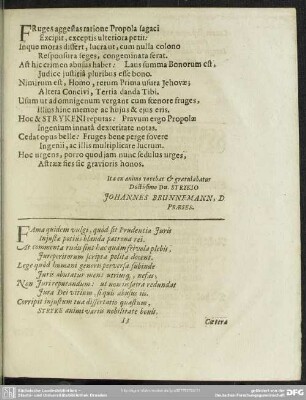 FRuges aggestas ratione Propola sagaci
Excipit, exceptis ulteriora petit:
Inque moras differt, lucra ut, cum nulla colono
Responsura seges, congeminata ferat.
Ast hic crimen abusus habet: Laus summa Bonorum est,
Judice justitiâ pluribus esse bono.
Nimirum est, Homo, rerum Prima usura Jehovæ;
Altera Concivi, Tertia danda Tibi.
Usum ut ad omnigenum vergant cum fœnore fruges,
Illius hinc memor ac hujus & ejus eris.
Hoc & STRYKENI reputas: Pravum ergo Propolæ
Ingenium innatâ dexteritate notas.
Cedat opus belle: Fruges bene perge fovere
Ingenii, ac illis multiplicare lucrum.
Hoc urgens, porro quod jam nunc sedulus urges,
Astrææ fies sic gravioris honos.
Ita ex animo vovebat & gratulabatur
Doctissimo Dn. STRYKIO
JOHANNES BRUNNEMANN, D.
PRÆSES.
FAma quidem vulgi, quod sit Prudentia Juris
Injusta potius blanda patrona rei.
Ast commenta rudis sunt hæc quàm frivola plebis,
Jureperitorum scripta polita docent.
Lege quòd humani generis perversa subinde
Juris abutatur mens utriusq, nefas;
Non Juri reputandum: ut non in sacra redundat
Jura Dei vitium, si quis abusus iis.
Corripit injustum tua dissertatio quæstum,
STRYKE animi variis nobilitate bonis.
Cætera